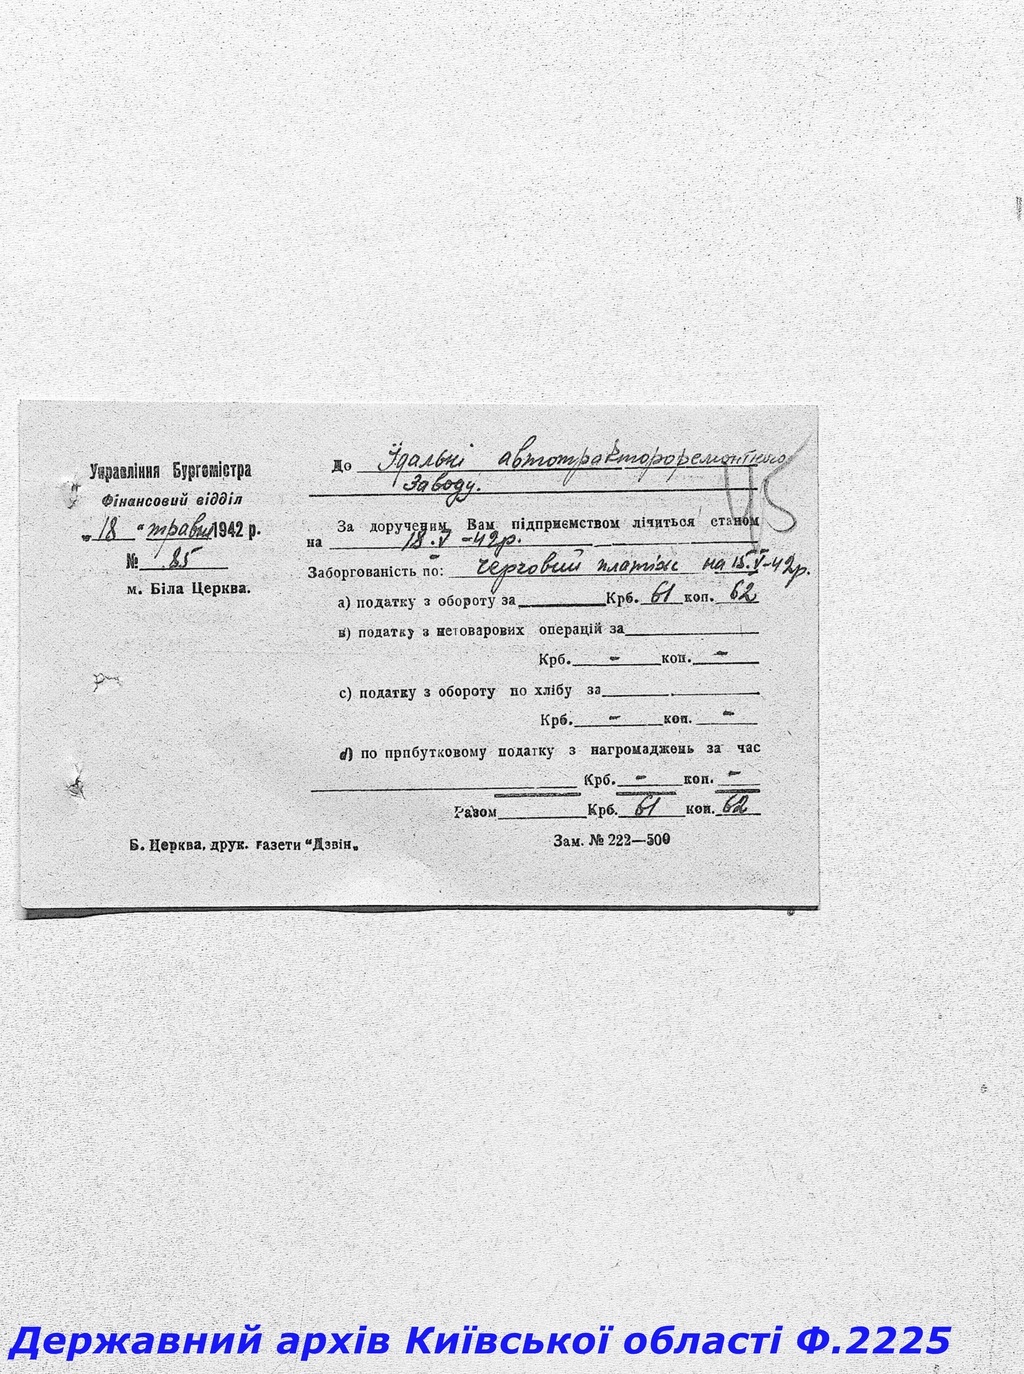 Управління Бургомістра
Фінансовий відділ
„ 18 “ травня 1942 р.
№ 85
м. Біла Церква.
До Їдальні автотрактороремонтного
Заводу.
45
За дорученим Вам підприємством лічиться станом
на 18.V-42р.
Заборгованість по: черговий платіж на 15.V-42р.
а) податку з обороту за Крб. 61 коп. 62
в) податку з нетоварових операцій за
Крб. - коп. -
с) податку з обороту по хлібу за
Крб. - коп. -
d) по прибутковому податку з нагромаджень за час
Крб. - коп. -
Разом Крб. 61 коп. 62
Б. Церква, друк. газети "Дзвін„
Зам. № 222—500
Державний архів Київської області Ф.2225